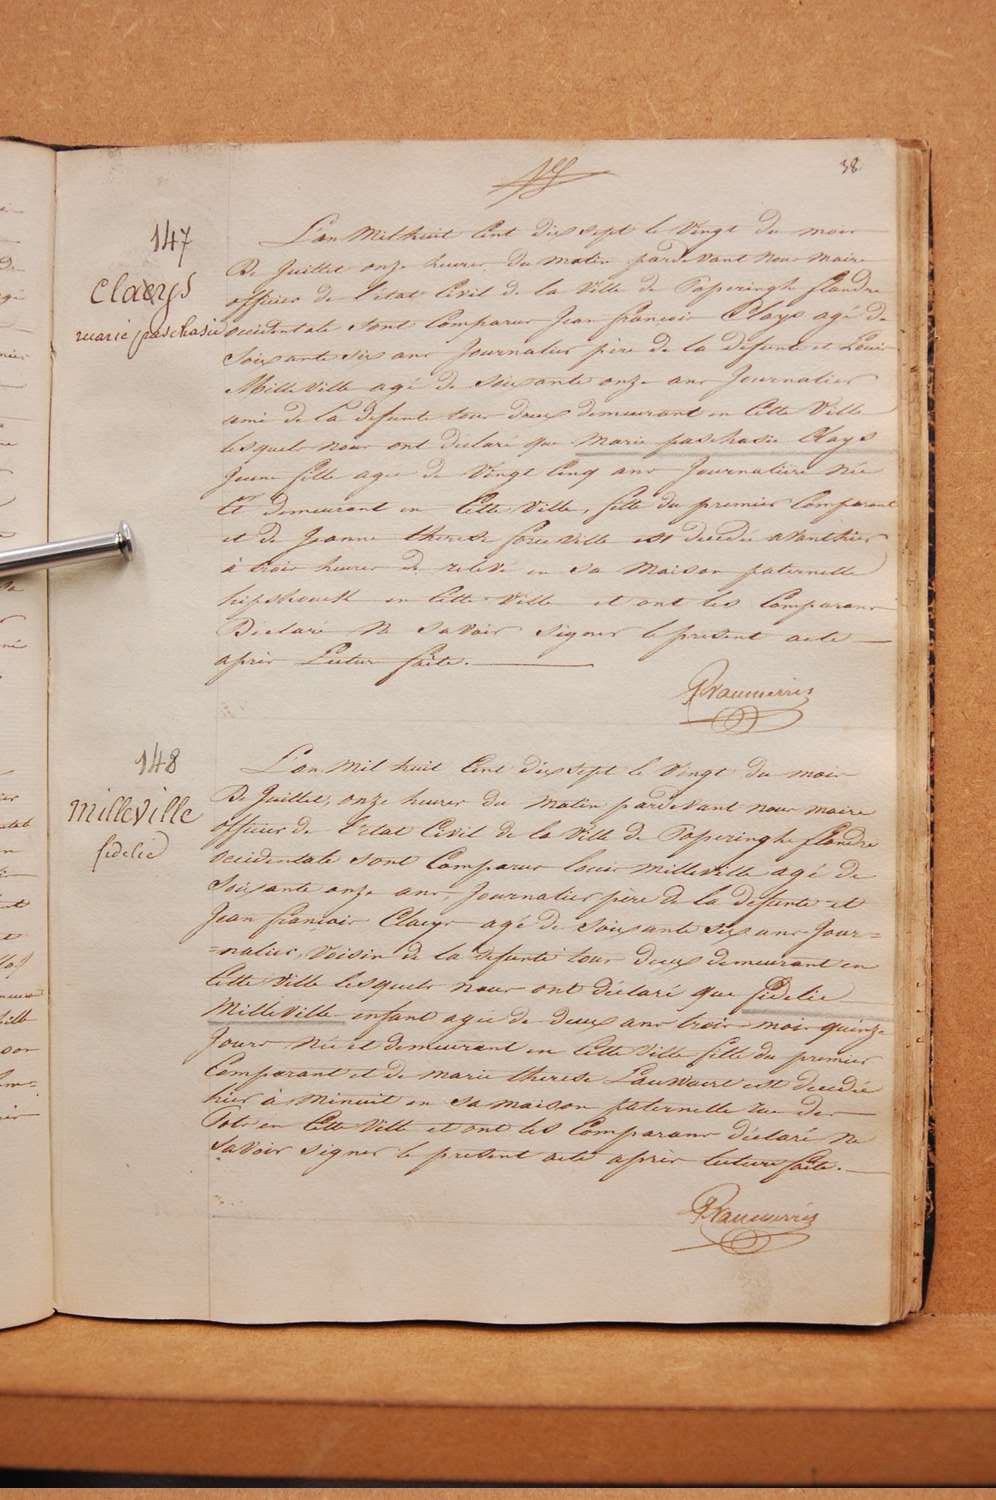 38
147
Claeys
marie paschasie
L'an Mil huit Cent dix sept le Vingt du mois
De Juillet onze heures du matin pardevant Nous maire
officier de l'etat Civil de la Ville de Poperinghe flandre
occidentale sont Comparus Jean francois Clays agé de
Soixante six ans Journalier père de la defunte et Louis
Milleville agé de soixante onze ans Journalier
ami de la défunte tous deux demeurant en Cette Ville
lesquels nous ont déclaré que Marie paschasie Clays
Jeune fille agée de Vingt Cinq ans Journalière née
Et demeurant en Cette Ville, fille du premier Comparant
et de Jeanne therese est decedée avanthier
à trois heures de relevé en sa Maison paternelle
en Cette Ville et ont les Comparans
Declaré Ne savoir signer le present acte
après Lecture faite.
148
Milleville
fidelie
L'an Mil huit Cent dix sept le Vingt du mois
De Juillet, onze heures du matin pardevant nous maire
officier de l'etat Civil de la Ville de Poperinghe flandre
occidentale sont Comparus louis Milleville agé de
Soixante onze ans, Journalier père de la defunte et
Jean françois Claeys agé de Soixante six ans Jour=
=nalier, Voisin de la defunte tous deux demeurant en
Cette Ville lesquels nous ont déclaré que fidelie
Milleville enfant agée de deux ans trois mois quinze
Jours Née et demeurant en Cette Ville fille du premier
Comparant et de marie therese Lauwaert est decedée
hier à Minuit en sa maison paternelle rue des
Pots en Cette Ville et ont les Comparans déclaré ne
Savoir signer le present acte après lecture faite.